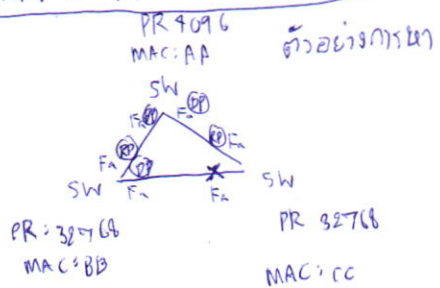 PR 4096
MAC: AA
ตัวอย่างการหา
SW
Fa DP Fa DP
Fa RP RP Fa
Fa DP
SW Fa Fa SW
PR: 32768
MAC: BB
PR 32768
MAC: CC